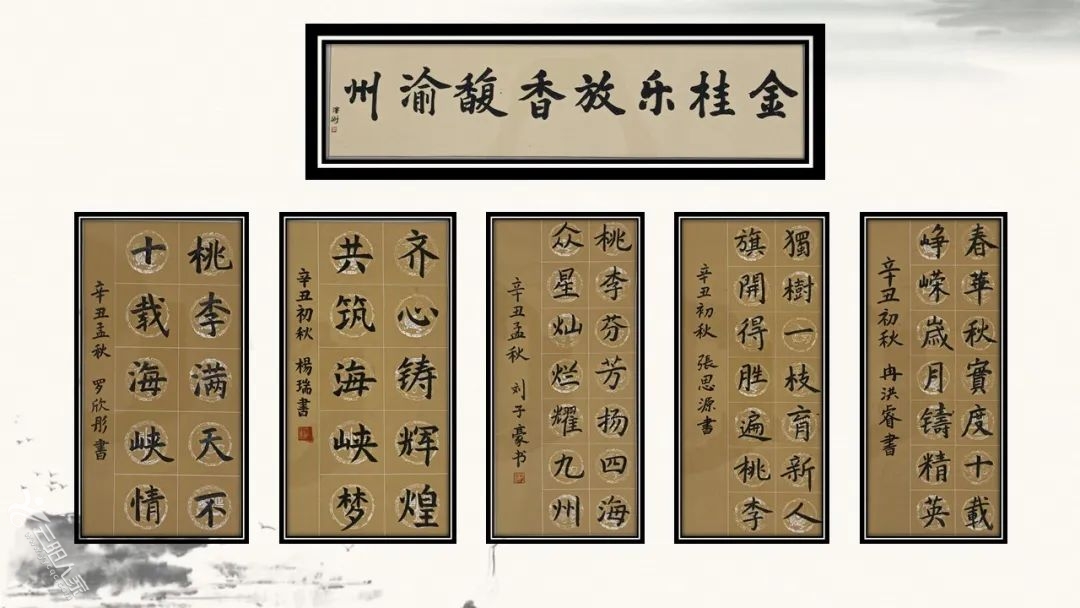 金桂乐放香馥渝州
春華秋實度十載
峥嵘歲月鑄精英
辛丑初秋 冉洪睿書
獨樹一枝育新人
旗開得胜遍桃李
辛丑初秋 張思源書
桃李芬芳扬四海
众星灿烂耀九州
辛丑孟秋 刘子豪书
齐心铸辉煌
共筑海峡梦
辛丑初秋 楊瑞書
桃李满天不
十载海峡情
辛丑孟秋 罗欣彤書